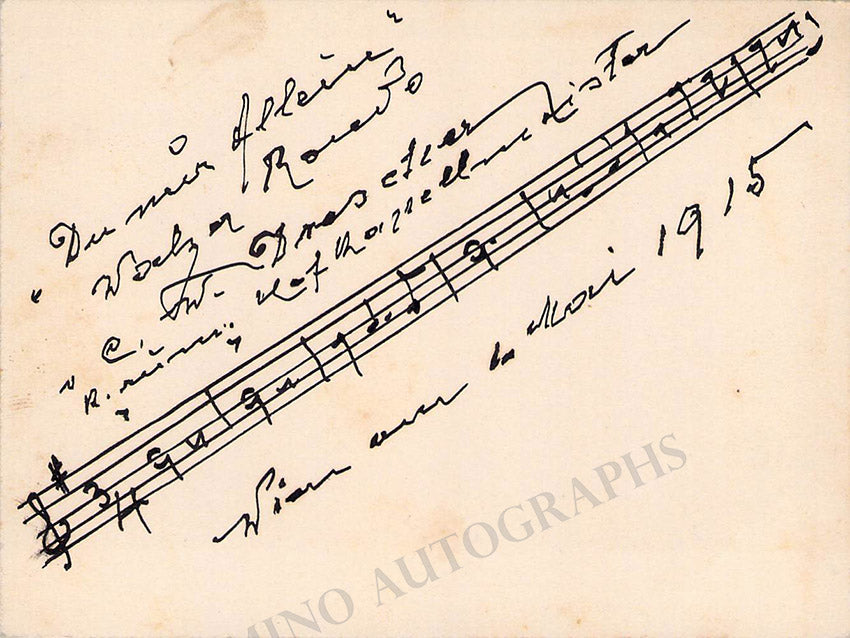 "Du nur Allein"
Walzer Rondo
C. W. Drescher
K. rum. Hofkapellmeister
Wien am 6. Mai 1915
MINO AUTOGRAPHS